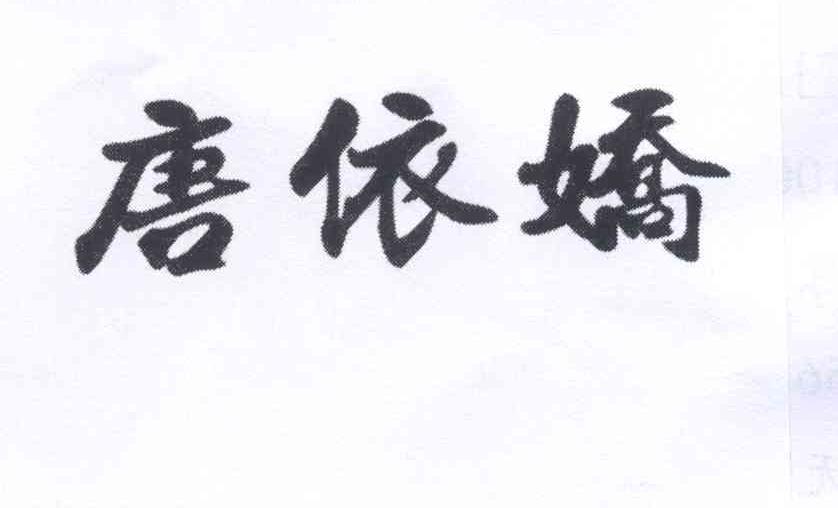 唐依嬌